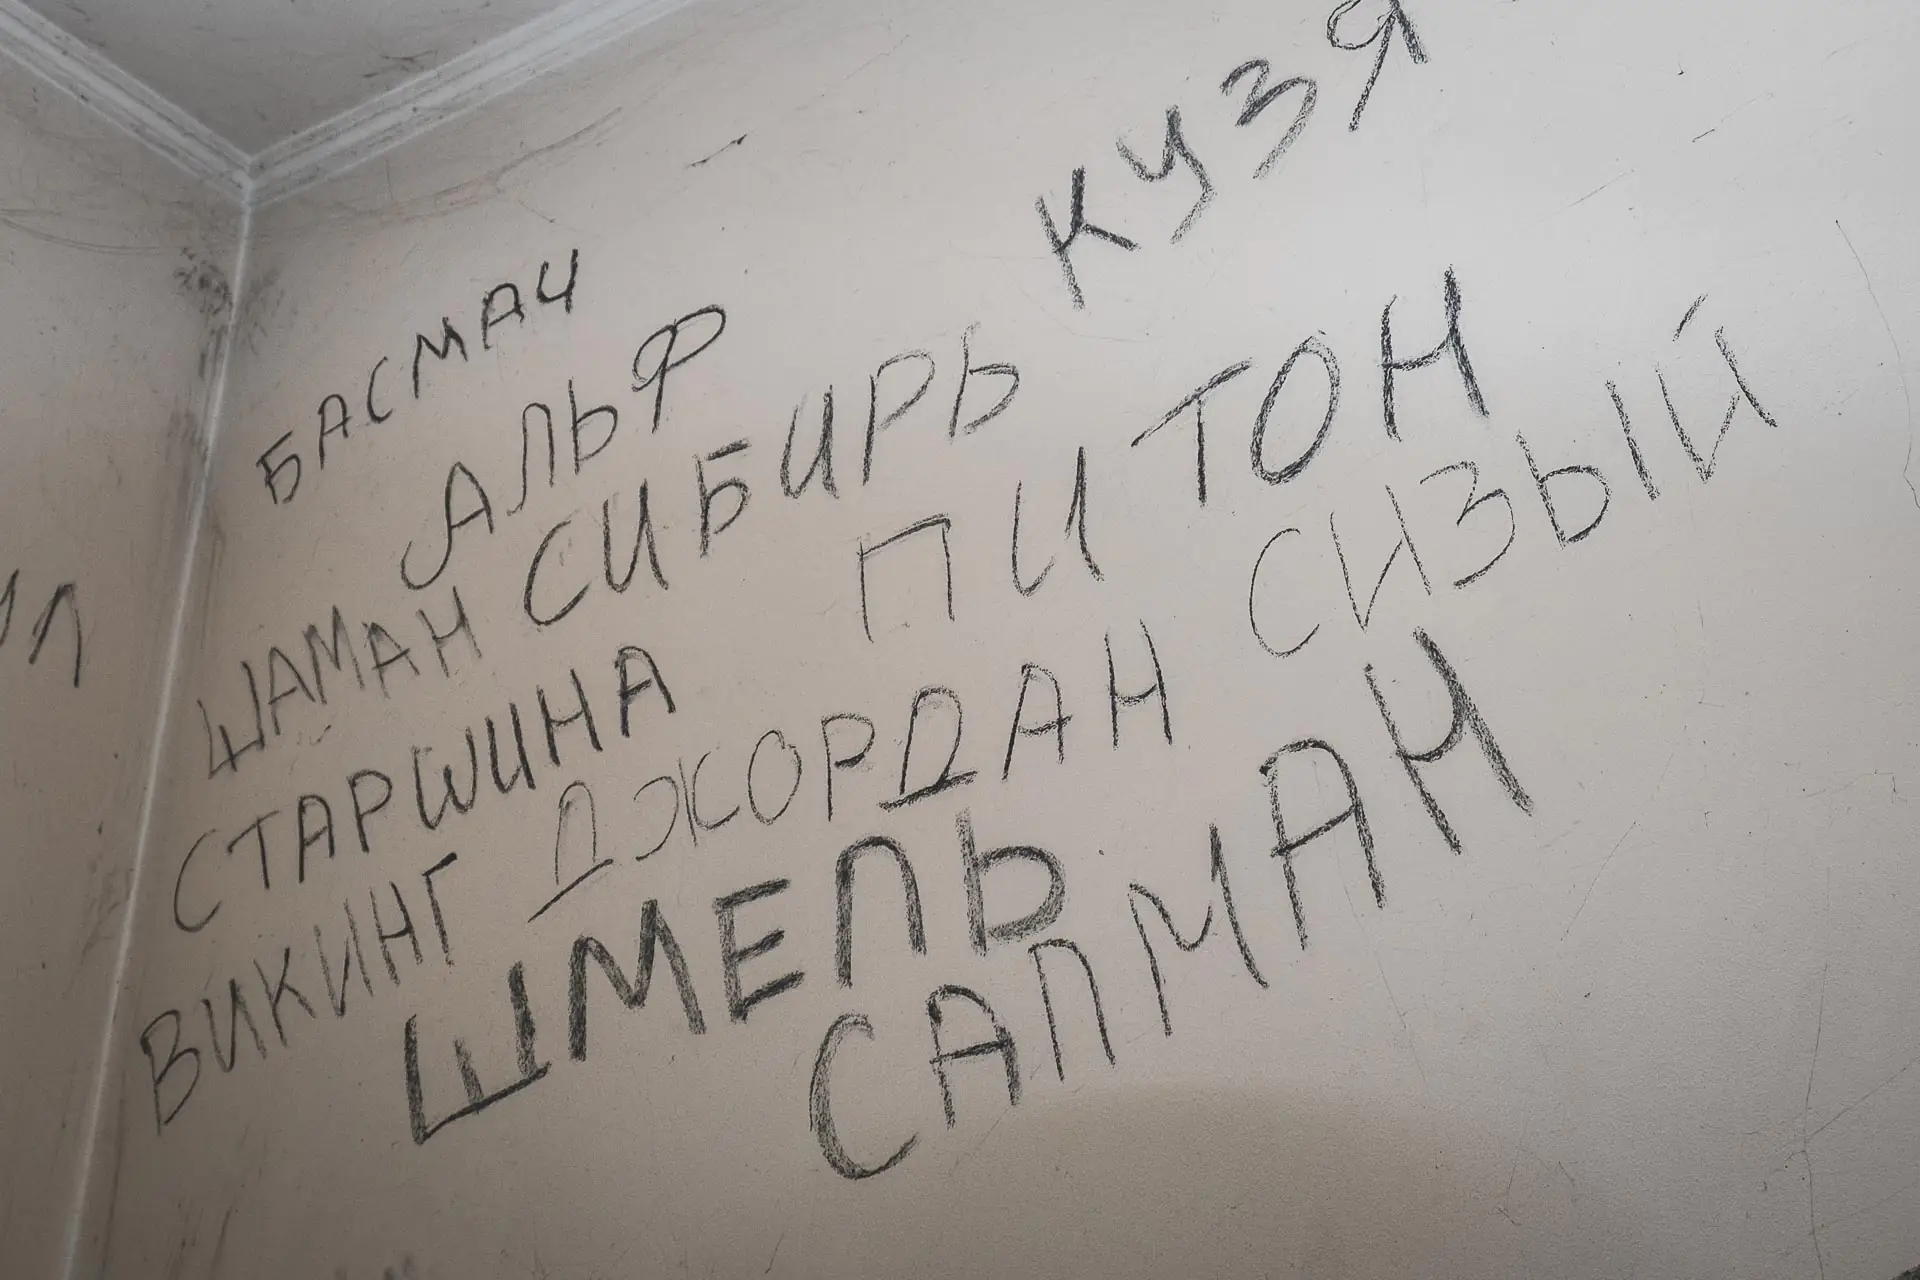 КУЗЯ
БАСМАЧ
АЛЬФ
ШАМАН СИБИРЬ
ПИТОН
СТАРШИНА
ДЖОРДАН СИЗЫЙ
ВИКИНГ
ШМЕЛЬ
САПМАН